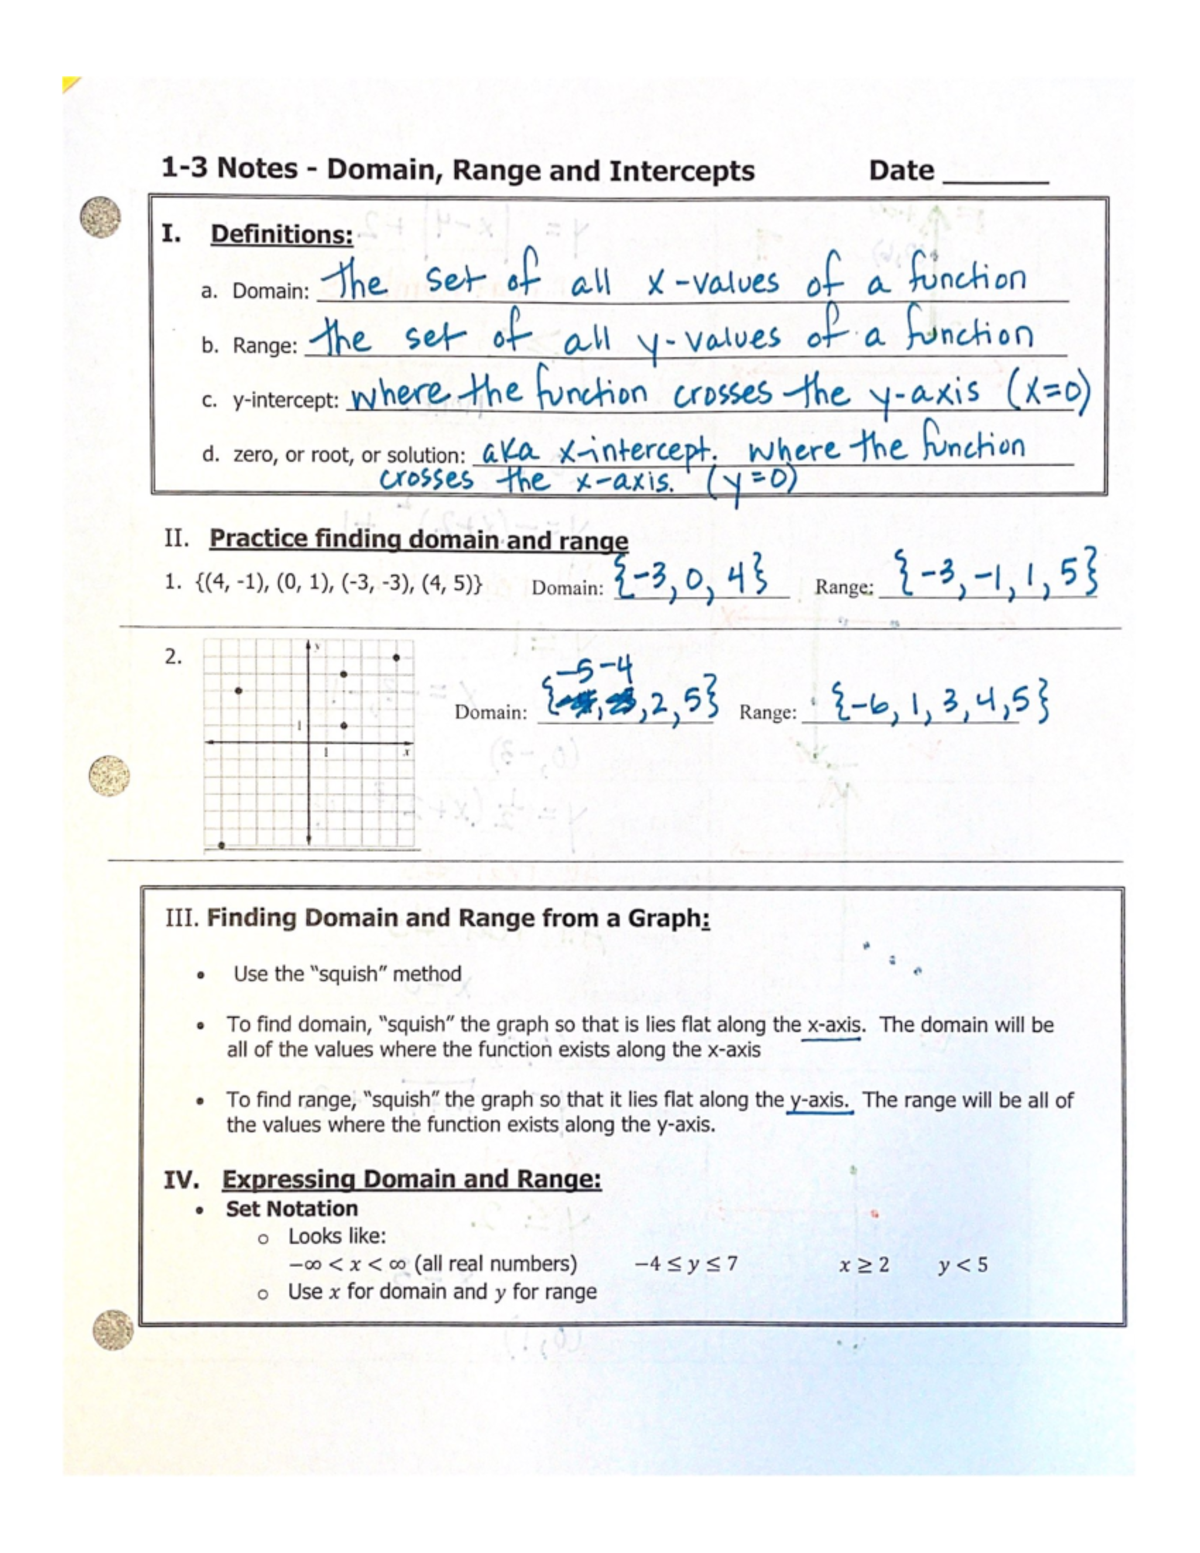 1-3 Notes - Domain, Range and Intercepts Date _______
I. Definitions:
a. Domain: The set of all x-values of a function
b. Range: The set of all y-values of a function
c. y-intercept: where the function crosses the y-axis (x=0)
d. zero, or root, or solution: aka x-intercept. where the function
crosses the x-axis. (y=0)
II. Practice finding domain and range
1. {(4, -1), (0, 1), (-3, -3), (4, 5)} Domain: {-3, 0, 4} Range: {-3, -1, 1, 5}
2.
y
1
1
x
-5 -4
Domain: { , , 2, 5} Range: {-6, 1, 3, 4, 5}
III. Finding Domain and Range from a Graph:
• Use the "squish" method
• To find domain, "squish" the graph so that is lies flat along the x-axis. The domain will be
all of the values where the function exists along the x-axis
• To find range, "squish" the graph so that it lies flat along the y-axis. The range will be all of
the values where the function exists along the y-axis.
IV. Expressing Domain and Range:
• Set Notation
o Looks like:
−∞ < x < ∞ (all real numbers) −4 ≤ y ≤ 7 x ≥ 2 y < 5
o Use x for domain and y for range